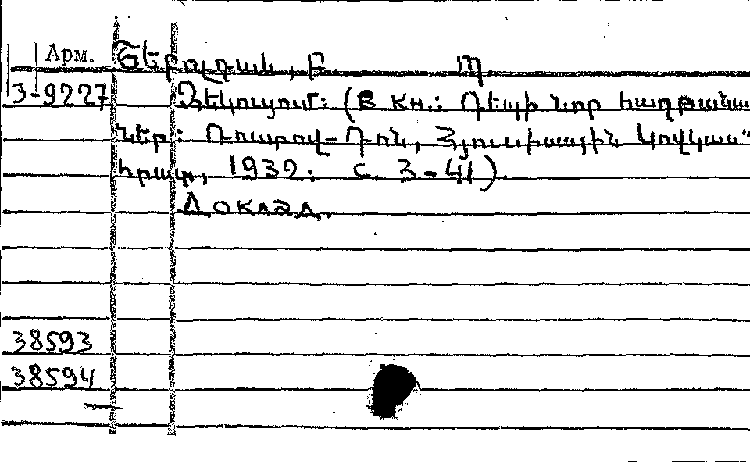 Арм. Շեբոլդաև, Բ. Պ
3-9227 Զեկուցում: (В кн.: Դեպի նոր հաղթանա
ներ: Ռոստով-Դոն, Հյուսիսային Կովկաս"
հրատ, 1932. с. 3-41)
Доклад.
38593
38594